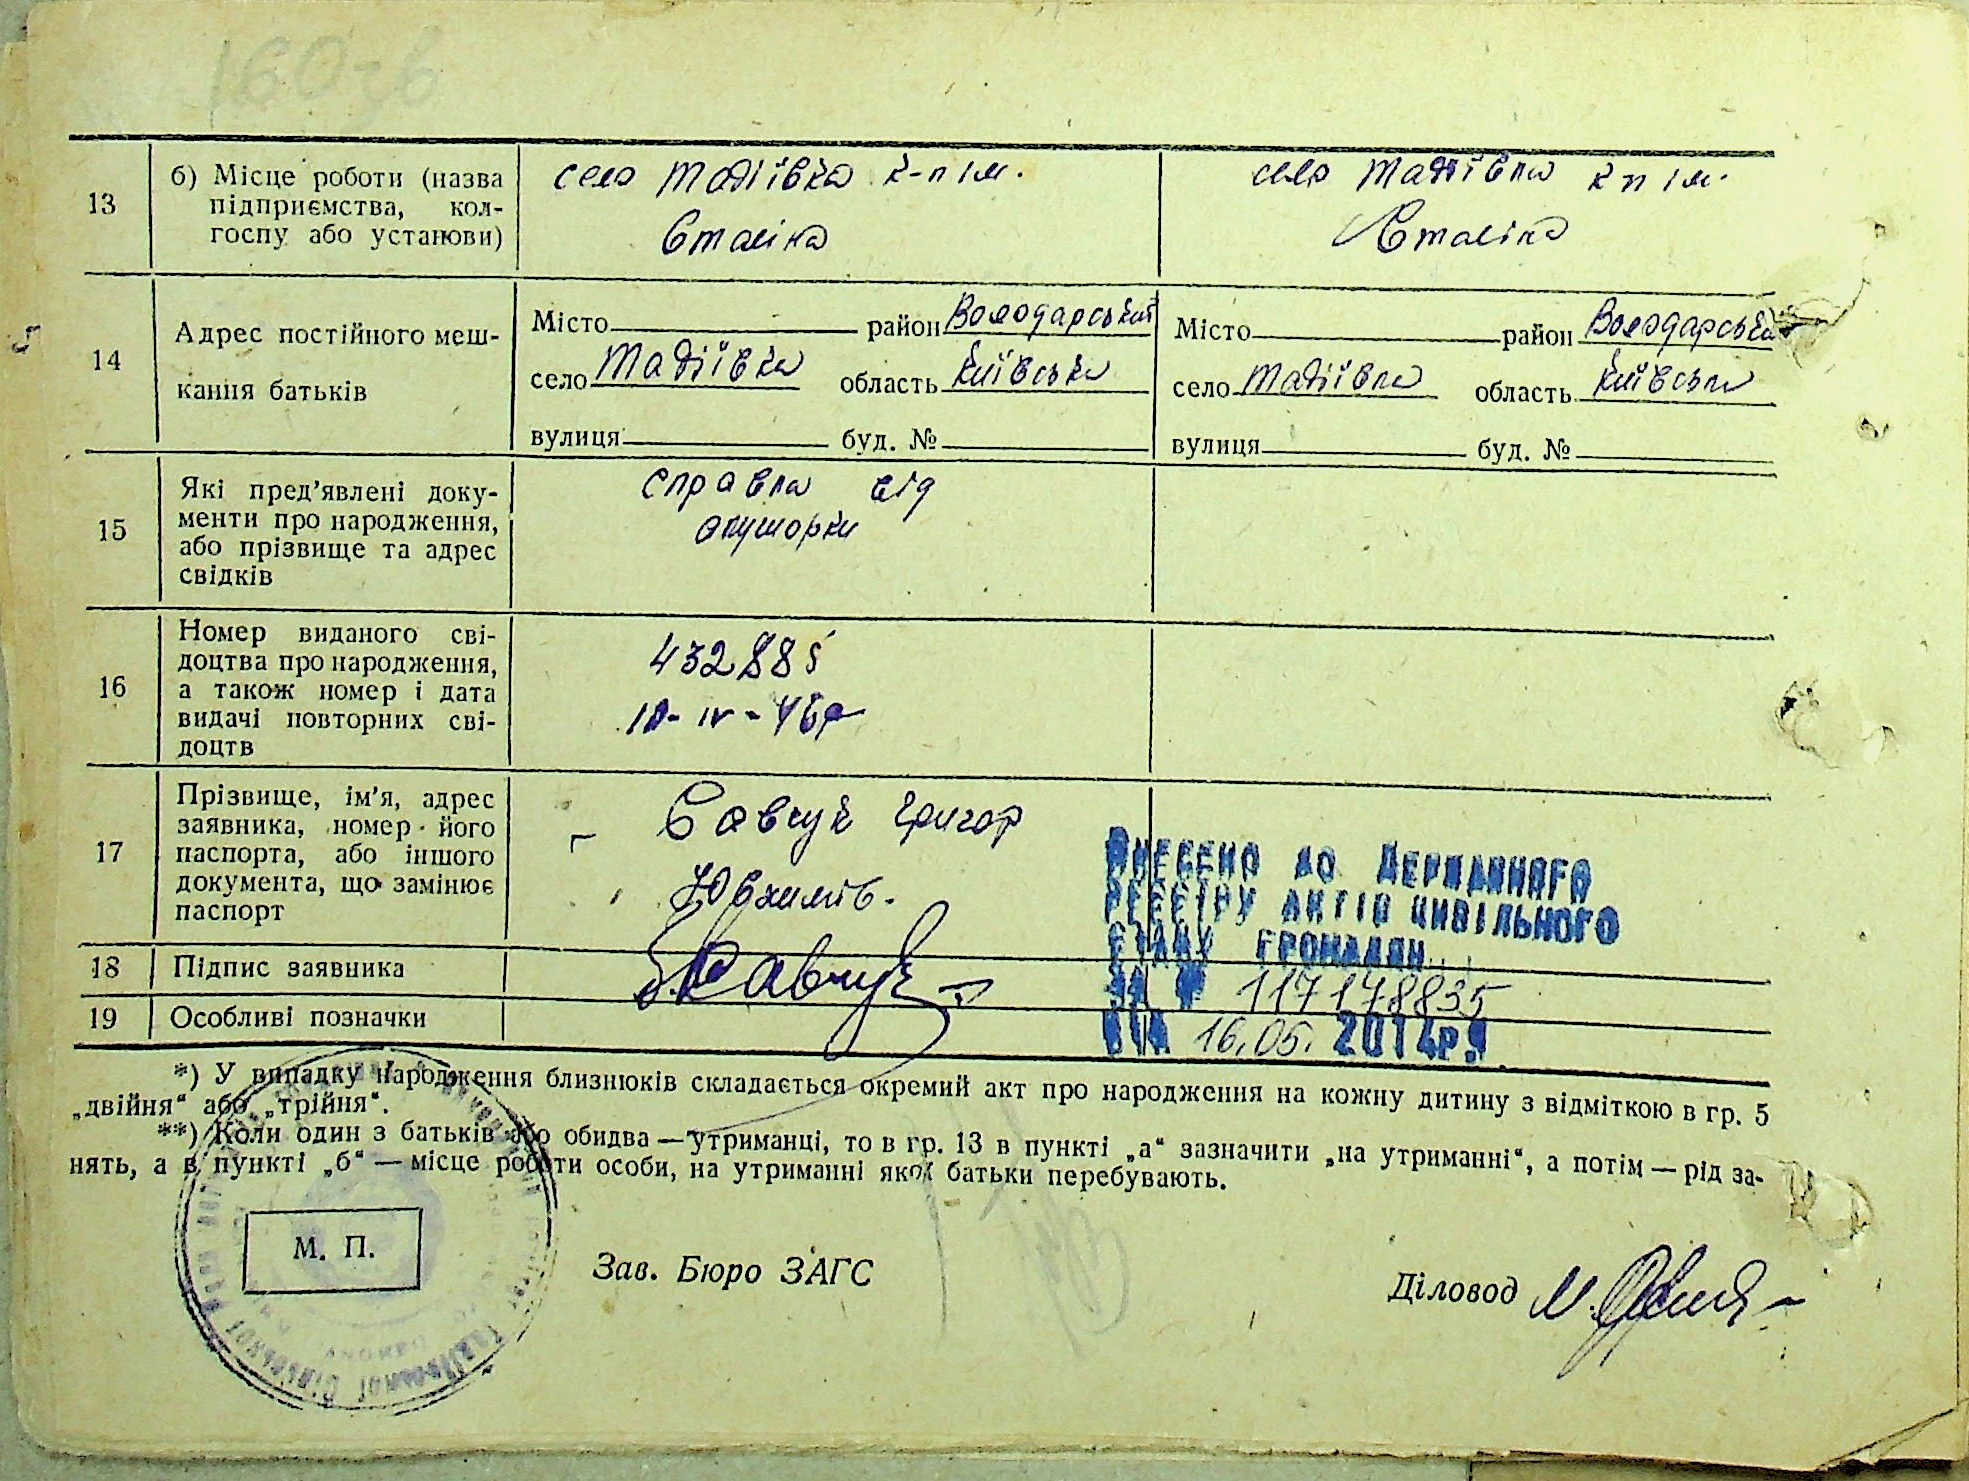 160зв
13
б) Місце роботи (назва
підприємства, кол-
госпу або установи)
село Тадіївка к-п ім.
Сталіна
село Тадіївка к п ім.
Сталіна
14
Адрес постійного меш-
кання батьків
Місто район Володарський
село Тадіївка область Київська
вулиця буд. №
Місто район Володарськи
село Тадіївка область Київська
вулиця буд. №
15
Які пред'явлені доку-
менти про народження,
або прізвище та адрес
свідків
справка від
акушорки
16
Номер виданого сві-
доцтва про народження,
а також номер і дата
видачі повторних сві-
доцтв
432885
10-IV-46р
17
Прізвище, ім'я, адрес
заявника, номер його
паспорта, або іншого
документа, що замінює
паспорт
Савчук Григор
Юхимів.
18
Підпис заявника
Савчук
19
Особливі позначки
Внесено до Державного
реєстру актів цивільного
стану громадян
за № 117178835
від 16.05. 2014р.
*) У випадку народження близнюків складається окремий акт про народження на кожну дитину з відміткою в гр. 5
„двійня“ або „трійня“.
**) Коли один з батьків або обидва — утриманці, то в гр. 13 в пункті „а“ зазначити „на утриманні“, а потім — рід за-
нять, а в пункті „б“ — місце роботи особи, на утриманні якої батьки перебувають.
М. П.
Зав. Бюро ЗАГС
Діловод